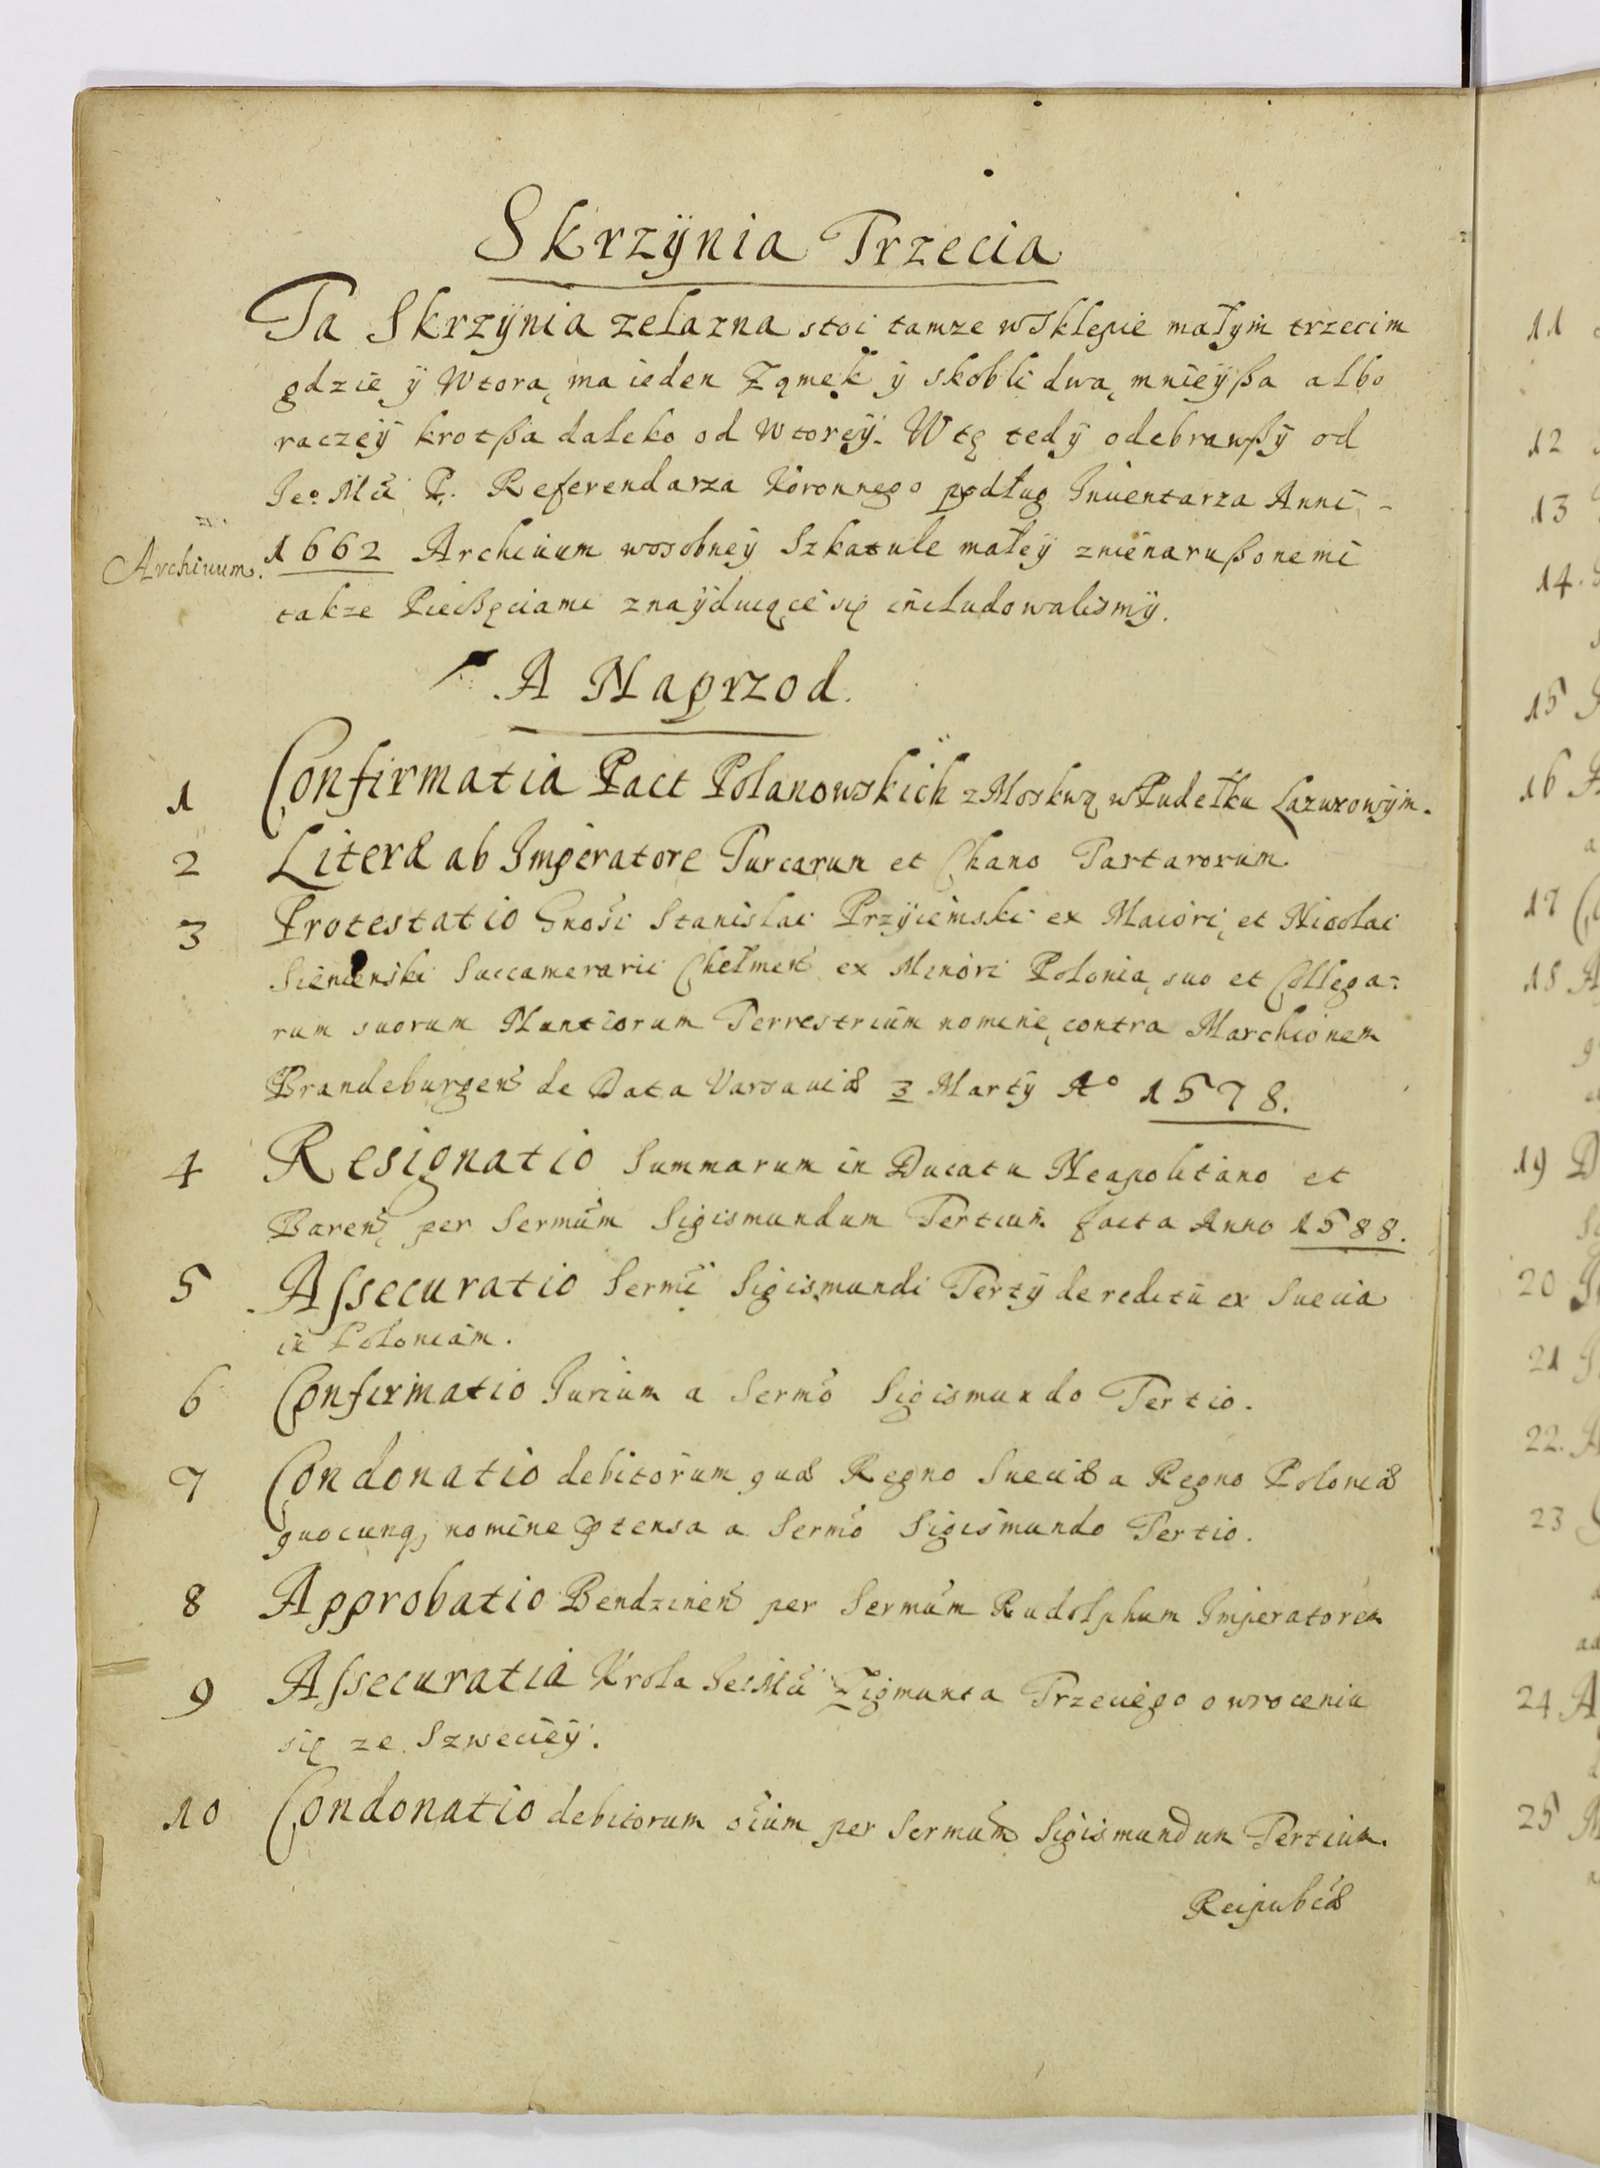 Skrzÿnia Trzecia
Ta Skrzÿnia zelazna stoi tamze w Sklepie małym trzecim
gdzie ÿ Wtora, ma ieden Zamek ÿ skobli dwa, mnieÿßa albo
raczeÿ krotßa daleko od Wtoreÿ. W tę tedÿ odebrawßÿ od
Jeo Mci P. Referendarza Koronnego podług Inuentarza Anni
Archiuum.
1662 Archiuum w osobneÿ Szkatule małeÿ z nienarußonemi
takze Pieczęciami znaÿduiące się includowalismÿ.
A Naprzod.
1 Confirmatia Pact Polanowskich z Moskwą w Pudełku Lazurowÿm.
2 Literæ ab Imperatore Turcarum et Chano Tartarorum
3 Protestatio Gnosi Stanislai Przÿiemski ex Maiori, et Nicolai
Sienienski Succamerarii Chełmen ex Minori Polonia, suo et Collega=
rum suorum Nuntiorum Terrestrium nomine, contra Marchionem
Brandeburgen de Data Varsauiæ 3 Martÿ Ao 1578.
4 Resignatio Summarum in Ducatu Neapolitano et
Baren, per Sermum Sigismundum Tertium facta Anno 1588.
5 Assecuratio Sermi Sigismundi Tertÿ de reditu ex Suecia
in Poloniam.
6 Confirmatio Jurium a Sermo Sigismundo Tertio.
7 Condonatio debitorum quæ Regno Sueciæ a Regno Poloniæ
quocunq, nomine ptensa a Sermo Sigismundo Tertio.
8 Approbatio Bendzinen per Sermum Rudolphum Imperatorem
9 Assecuratia Krola Je: Mci Zigmunta Trzeciego o wroceniu
się ze Szwecieÿ.
10 Condonatio debitorum oium per Sermum Sigismundum Tertium.
Reipubcæ
11
12
13
14.
15
16
17
18
19
20
21
22.
23
24
25